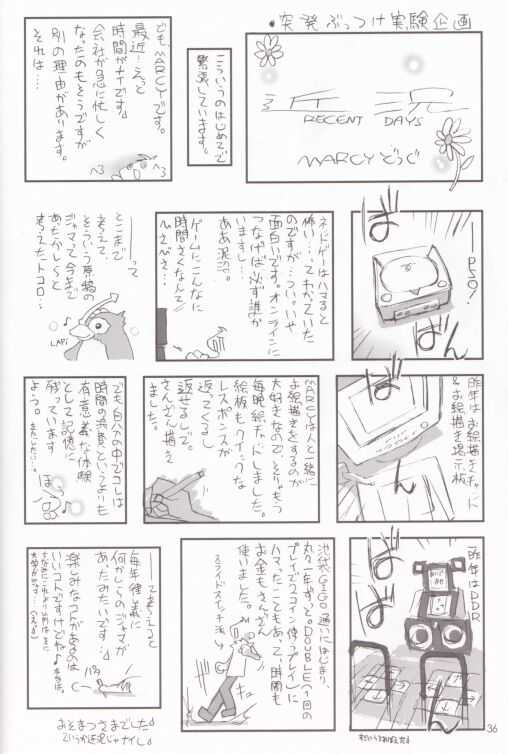 ・突発ぶっつけ実験企画
近況
RECENT DAYS
MARCY どうぐ
こういうのはじめてで
緊張しています。
でも、MARCYです。
最近…えっと
時間がナイです。
会社が急に忙しく
なったのもそうですが
別の理由があります。
それは…
ばん
――PSO!
ネトゲーはハマると
怖い…ってわかっていた
のですが…ついついや
面白いです。オンラインに
つなげば必ず誰か
いますし…
ああ泥沼。
ゲームにこんなに
時間さくなんて
――って
とこまで
考えて、
そういう原稿の
ジャマって今まで
あったかしらと
考えてたトコロ…
LAPi ♪
ばん
昨年は お絵描きチャット
&お絵描き掲示板
MARCYは人と一緒に
お絵描きをするのが
大好きなので、そりゃもう
毎晩絵チャットしました。
絵板もクイックな
レスポンスが
返ってくるし
返せるしで。
さんざん描き
ました。
でも、自分の中でコレは
時間の浪費というよりも
有意義な体験
として記憶に
残っています
よう。
ばん
昨年はDDR
池袋GiGO通いにはじまり、
丸々1年ずっと。DOUBLE(1回の
プレイで2コイン使うプレイ)に
ハマったこともあって時間も
お金もさんざん
使いました。
スライドスイッチ派
――て考えると
毎年律義に
何かしらのジャマが
あったみたいです…♪
楽しみなコトがあるのは
いいコトですけどね♪
おそまつさまでした♪
ていうか近況じゃナイし。
36